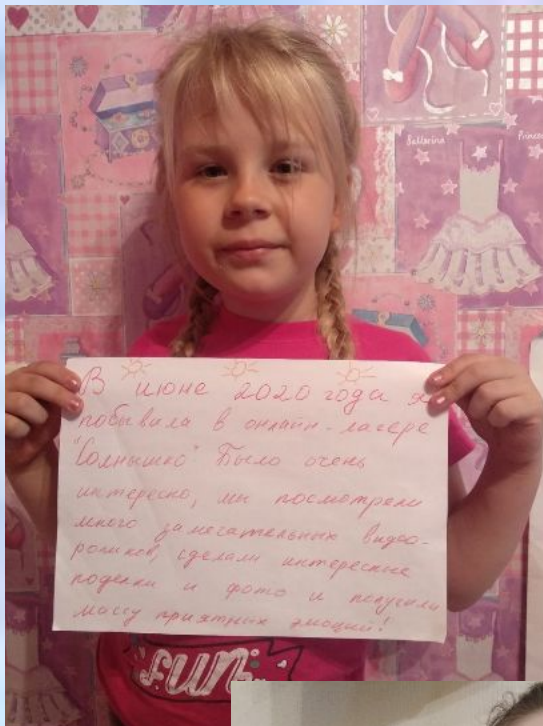 Ballerina
Princess
В июне 2020 года я
побывала в онлайн-лагере
"Солнышко" Было очень
интересно, мы посмотрели
много замечательных видео-
роликов, сделали интересные
поделки и фото и получили
массу приятных эмоций!
fun